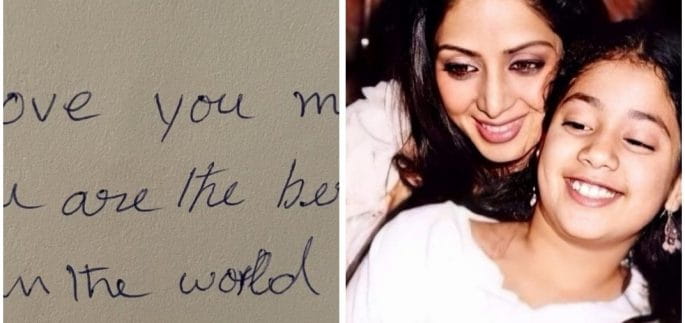 ove you m
u are the be
in the world